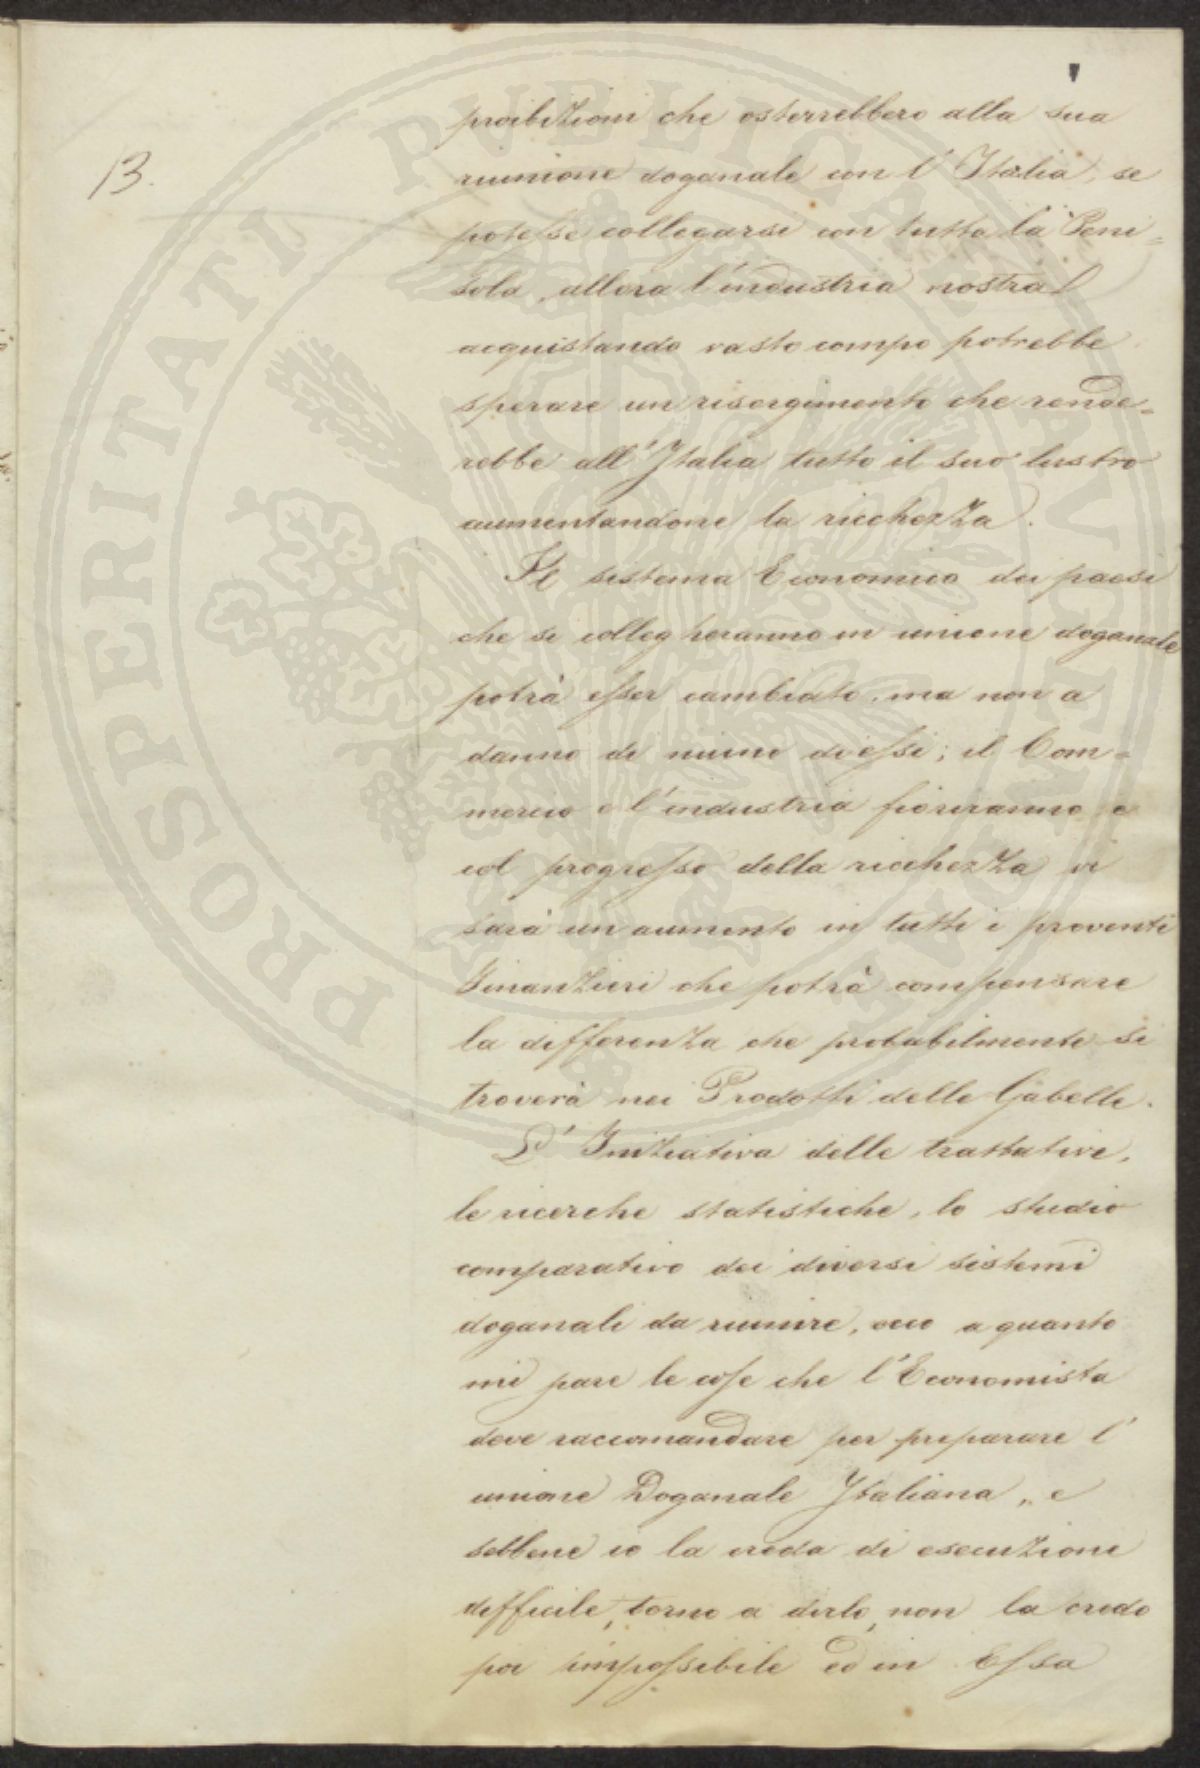 13.
proibizioni che osterrebbero alla sua
riunione doganale con l'Italia, se
potesse collegarsi con tutta la Peni=
sola, allora l'industria nostra
acquistando vasto campo potrebbe
sperare un risorgimento che rende=
rebbe all'Italia tutto il suo lustro
aumentandone la ricchezza.
Il sistema Economico dei paesi
che si collegheranno in unione doganale
potrà esser cambiato, ma non a
danno di niuno di essi; il Com=
mercio e l'industria fioriranno e
col progresso della ricchezza vi
sarà un aumento in tutti i proventi
Finanzieri che potrà compensare
la differenza che probabilmente si
troverà nei Prodotti delle Gabelle.
L'Iniziativa delle trattative,
le ricerche statistiche, lo studio
comparativo dei diversi sistemi
doganali da riunire, ecco a quanto
mi pare le cose che l'Economista
deve raccomandare per preparare l'
unione Doganale Italiana, e
sebbene io la creda di esecuzione
difficile, torno a dirlo, non la credo
poi impossibile ed in Essa
PROSPERITATI PVBLICAE AVGENDAE